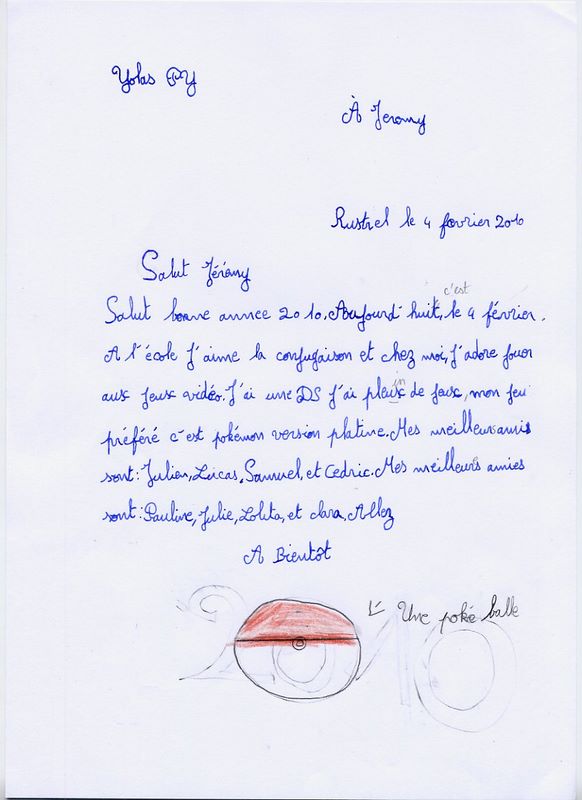 Yolas PY
À Jeremy
Rustrel le 4 fevrier 2010
Salut Jérémy
c'est
Salut bonne annee 2010. Aujourd'huit, le 4 février.
A l'école j'aime la conjugaison et chez moi, j'adore jouer
aux jeux vidéo. J'ai une DS j'ai pleins de jeux, mon jeu
préféré c'est pokémon version platine. Mes meilleurs amis
sont: Julien, Lucas, Samuel, et Cedric. Mes meilleurs amies
sont: Pauline, Julie, Lolita, et clara, Allez
A Bientôt
Une poké balle
2010